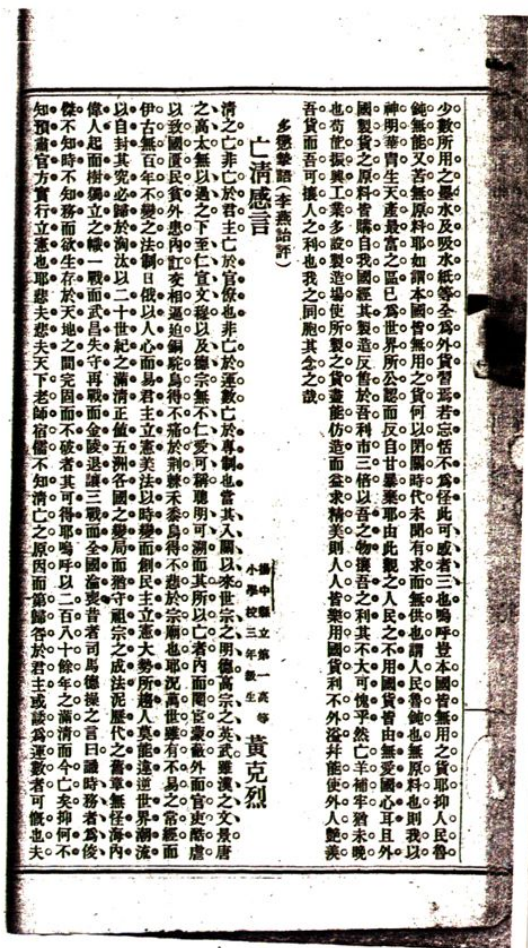 少數所用之墨水及吸水紙等全爲外貨習焉若忘恬不爲怪此可感者三也嗚呼豈本國皆無用之貨耶抑人民魯
鈍無能又苦無原料耶如謂本國皆無用之貨何以閉關時代未聞有求而無供也謂人民魯鈍也無原料也則我以
神明華胄生天產最富之區已爲世界所公認而反自甘暴棄耶由此觀之人民之不用國貨皆由無愛國心耳且外
國製貨之原料皆購自我國經其製造反售於吾利市三倍以吾之物攘吾之利其不大可愧乎然亡羊補牢猶未晚
也苟世振興工業多設製造場使所製之貨盡能仿造而益求精美則人人皆樂用國貨利不外溢幷能使外人艷羨
吾貨而吾可攘人之利也我之同胞其念之哉
多懲摯語(李燕詒評)
亡淸感言
揚中縣立第一高等
小學校三年級生 黃克烈
淸之亡非亡於君主亡於官僚也非亡於運數亡於專制也當其入關以來世宗之明德高宗之英武雖漢之文景唐
之高太無以過之下至仁宣文穆以及德宗無不仁愛可稱聰明可溯而其所以亡者內而閹官蒙蔽外而官吏酷虐
以致國匱民貧外患內訌交相逼迫銅駝烏得不痛於荆棘禾黍烏得不悲於宗廟也耶況萬世雖有不易之常經而
伊古無百年不變之法制日俄以人心而易君主立憲美法以時變而創民主立憲大勢所趨人莫能違逆世界潮流
以自封其究必歸於淘汰以二十世紀之滿淸正値五洲各國之變局而猶守祖宗之成法泥歷代之舊章無怪海內
偉人起而樹獨立之幟一戰而武昌失守再戰而金陵退讓三戰而全國淪喪昔者司馬德操之言曰識時務者爲俊
傑不知時不知務而欲生存於天地之間完固而不破者其可得耶嗚呼以二百八十餘年之滿淸而今亡矣抑何不
知預畫官方實行立憲也耶悲夫悲夫天下老師宿儒不知淸亡之原因而第歸咎於君主或諉爲運數者可慨也夫